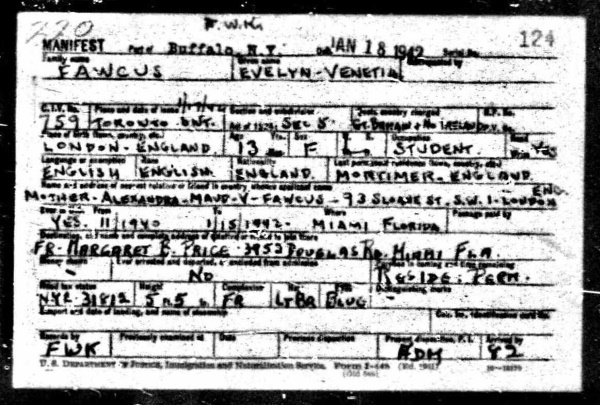 220 F.W.K.
MANIFEST Port of Buffalo, N.Y. Date JAN 18 1942 Serial No. 124
Family name Given name Accompanied by
FAWCUS EVELYN-VENETIA
C.I.V. No. Place and date of issue Section and subdivision Quota country charged R.P. No.
759 TORONTO. ONT. Act of 1924; SEC 5 GT. BRITAIN & No IRELAND
Place of birth (town, country, etc.) Age Sex Occupation Read
LONDON - ENGLAND. 13 F STUDENT. Write YES
Language or exemption Race Nationality Last permanent residence (town, country, etc.)
ENGLISH ENGLISH. ENGLAND. MORTIMER - ENGLAND.
Name and address of nearest relative or friend in country whence applicant came ENG.
MOTHER-ALEXANDRA-MAUD-V-FAWCUS - 93 SLOANE ST. S.W.1-LONDON
Ever in U.S. From To Where Passage paid by
YES. 11/1940 1/15/1942 - MIAMI FLORIDA
FR- MARGARET B. PRICE - 3953 DOUGLAS RD. MIAMI FLA.
Money shown Ever arrested and deported, or excluded from admission
NO RESIDE: PERM.
Head tax status Height Complexion Hair Eyes Distinguishing marks
5 ft 5 in. FR LT BR BLUE
Seaport and date of landing, and name of steamship
Records by Previously examined at Date Previous disposition Present disposition, P.I. Arrived by
FWK ADM 82
U. S. DEPARTMENT OF JUSTICE, Immigration and Naturalization Service. FORM I-448